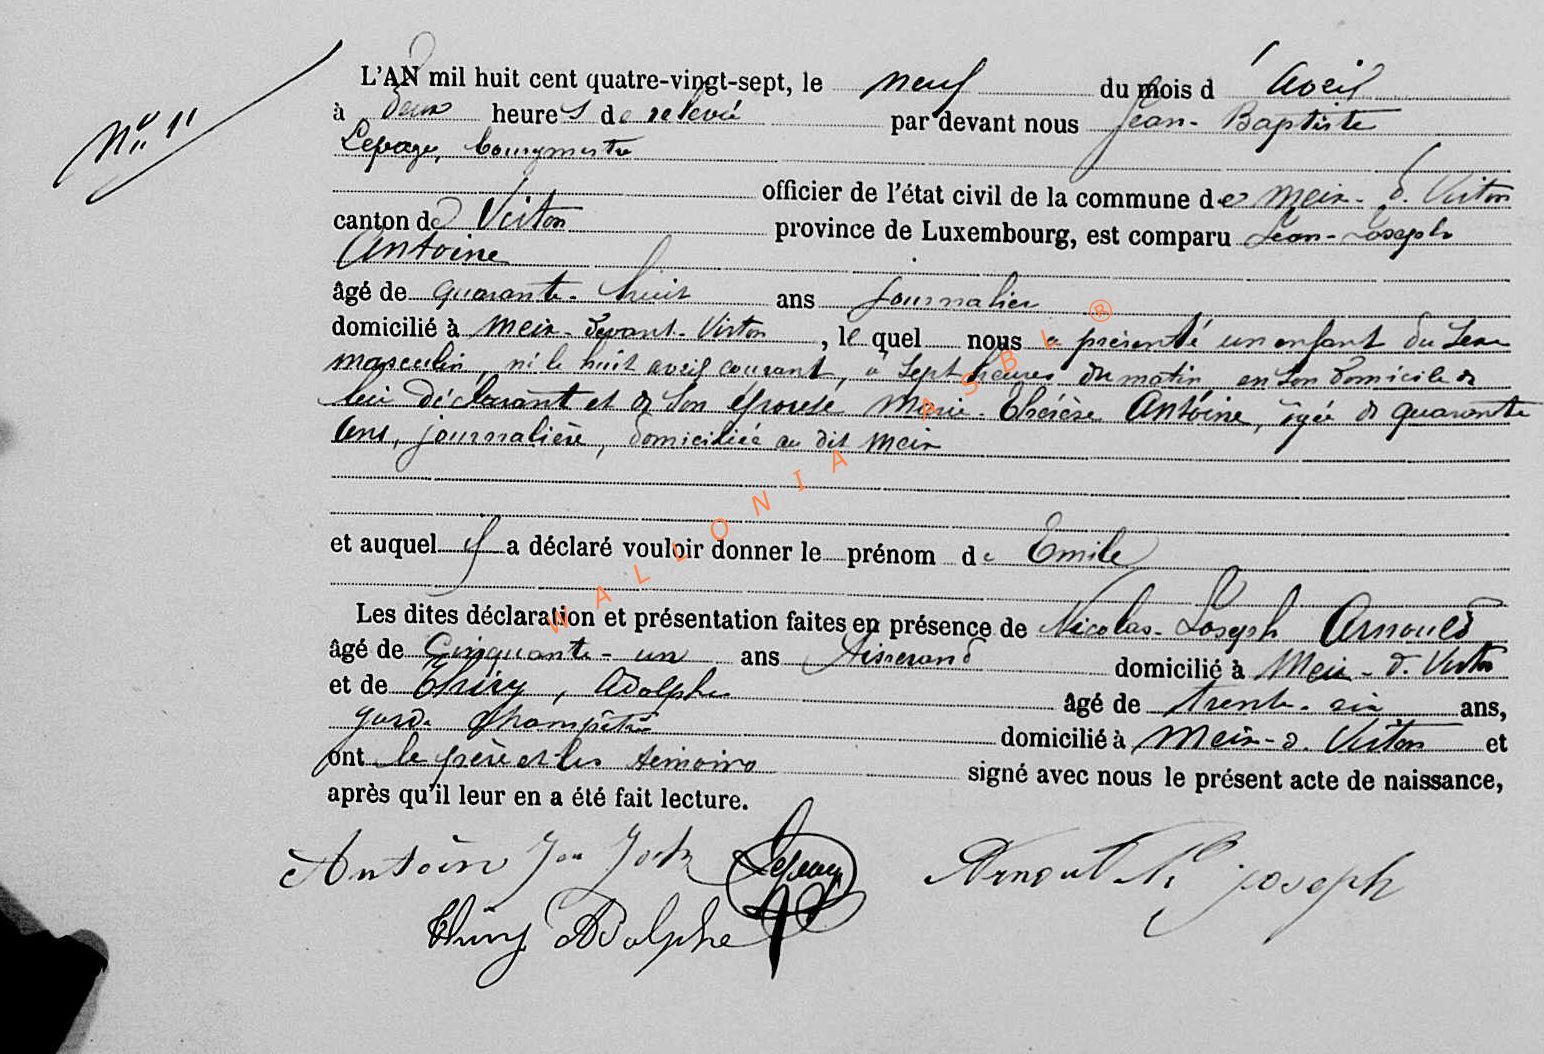 N° 11
L'AN mil huit cent quatre-vingt-sept, le neuf du mois d'avril
à deux heures de relevée par devant nous Jean-Baptiste
Lepage, bourgmestre
officier de l'état civil de la commune de Meix-d. Virton
canton de Virton province de Luxembourg, est comparu Jean-Joseph
Antoine
âgé de quarante-huit ans journalier
domicilié à Meix-devant-Virton, lequel nous a présenté un enfant du sexe
masculin, né le huit avril courant, à sept heures du matin, en son domicile de
lui déclarant et de son épouse Marie-Thérèse Antoine, âgée de quarante
ans, journalière, domiciliée au dit Meix
et auquel il a déclaré vouloir donner le prénom de Emile
Les dites déclaration et présentation faites en présence de Nicolas-Joseph Arnould
âgé de cinquante-un ans tisserand domicilié à Meix-d. Virton
et de Thiry, Adolphe âgé de trente-six ans,
garde champêtre domicilié à Meix-d. Virton et
ont le père et les témoins signé avec nous le présent acte de naissance,
après qu'il leur en a été fait lecture.
Antoin Lepage Arnout Ni joseph
Thiry Adolphe
WALLONIA ASBL ®